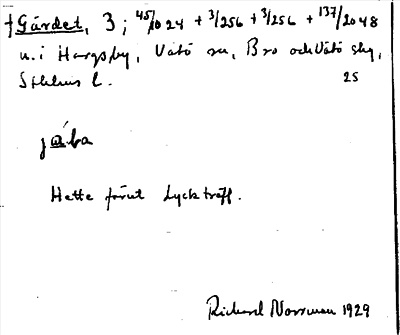 † Gärdet, 3; 45/1024 + 3/256 + 3/256 + 137/2048
u. i Hargsby, Vätö sn, Bro och Vätö skg,
Sthlms l. 25
Hette förut Lyckträff.
Richard Norrman 1929